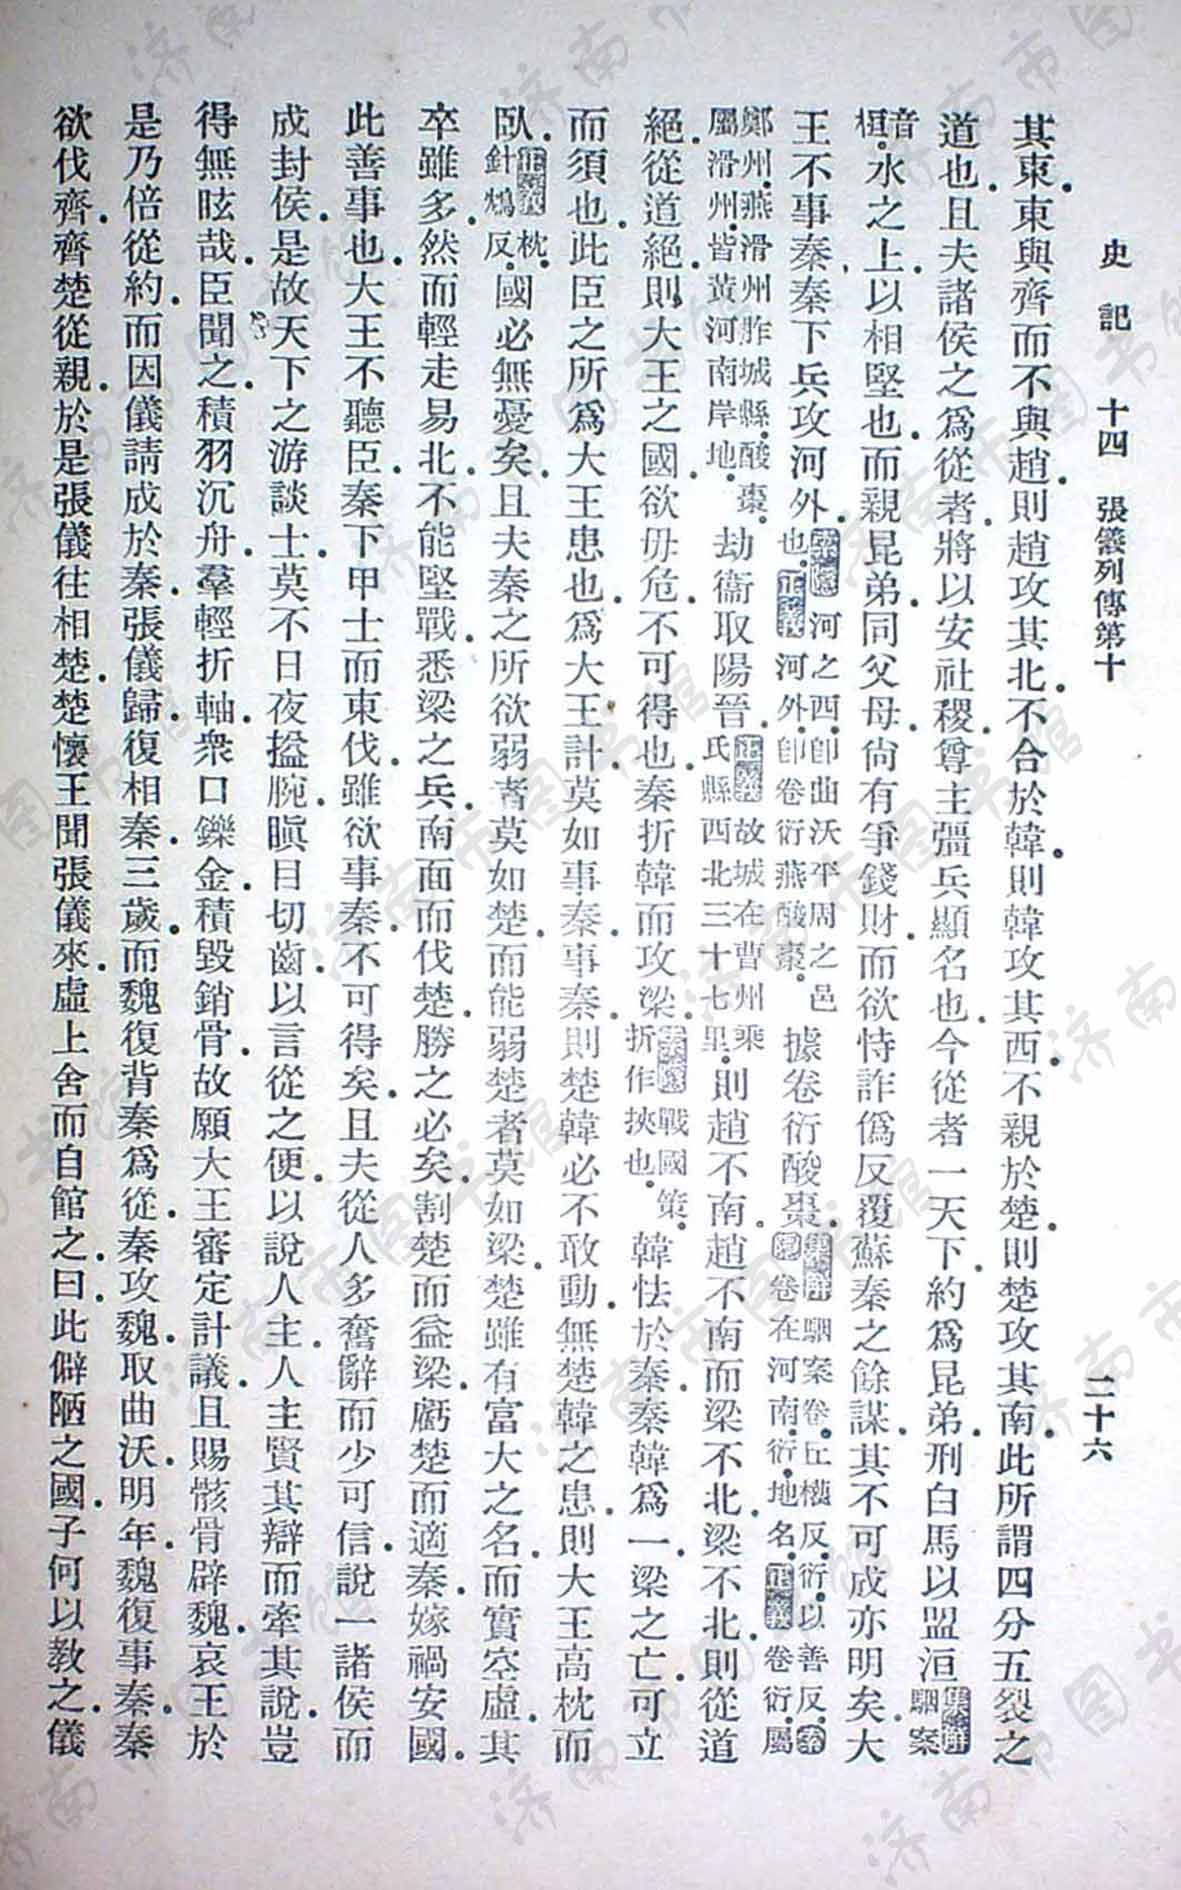 史記 十四 張儀列傳第十 二十六
其東.東與齊而不與趙.則趙攻其北.不合於韓.則韓攻其西.不親於楚.則楚攻其南.此所謂四分五裂之
道也.且夫諸侯之爲從者.將以安社稷.尊主彊兵顯名也.今從者一天下.約爲昆弟.刑白馬以盟洹集解駰案
音桓.水之上.以相堅也.而親昆弟.同父母.尙有爭錢財.而欲恃詐僞反覆蘇秦之餘謀.其不可成亦明矣.大
王不事秦.秦下兵攻河外.索隱河之西.卽曲沃平周之邑也.正義河外.卽卷衍燕酸棗.據卷衍酸棗.集解駰案卷.丘權反.衍.以善反.索隱卷在河南.衍.地名.正義卷衍.屬
鄭州.燕滑州胙城縣.酸棗屬滑州.皆黃河南岸地.劫衞取陽晉.正義故城在曹州乘氏縣西北三十七里.則趙不南.趙不南而梁不北.梁不北.則從道
絕.從道絕.則大王之國.欲毋危.不可得也.秦折韓而攻梁.索隱戰國策.折作挾也.韓怯於秦.秦韓爲一.梁之亡.可立
而須也.此臣之所爲大王患也.爲大王計.莫如事秦.事秦.則楚韓必不敢動.無楚韓之患.則大王高枕而
臥.正義枕.針鴆反.國必無憂矣.且夫秦之所欲弱者.莫如楚.而能弱楚者莫如梁.楚雖有富大之名.而實空虛.其
卒雖多.然而輕走易北.不能堅戰.悉梁之兵.南面而伐楚.勝之必矣.割楚而益梁.虧楚而適秦.嫁禍安國.
此善事也.大王不聽臣.秦下甲士而東伐.雖欲事秦.不可得矣.且夫從人多奮辭而少可信.說一諸侯而
成封侯.是故天下之游談士.莫不日夜搤腕.瞋目切齒.以言從之便.以說人主.人主賢其辯.而牽其說.豈
得無眩哉.臣聞之.積羽沉舟.羣輕折軸.衆口鑠金.積毀銷骨.故願大王審定計議.且賜骸骨辟魏.哀王於
是乃倍從約.而因儀請成於秦.張儀歸.復相秦.三歲.而魏復背秦爲從.秦攻魏.取曲沃.明年.魏復事秦.秦
欲伐齊.齊楚從親.於是張儀往相楚.楚懷王聞張儀來.虛上舍而自館之.曰.此僻陋之國.子何以敎之.儀